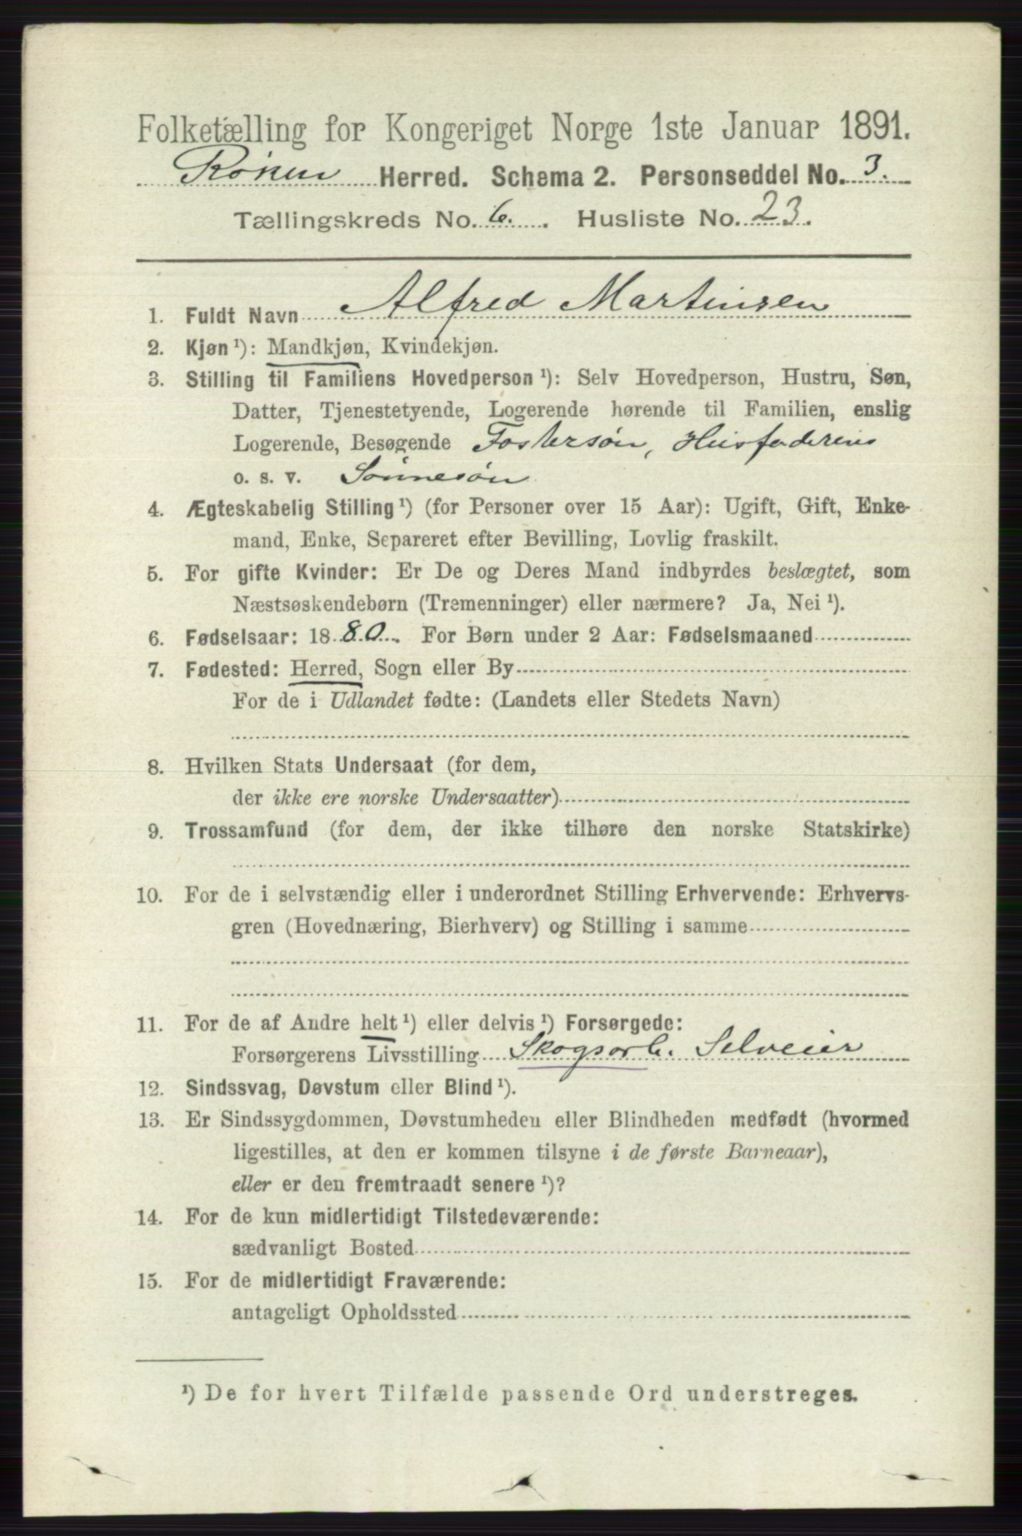 Folketælling for Kongeriget Norge 1ste Januar 1891.
Røken Herred. Schema 2. Personseddel No. 3.
Tællingskreds No. 6. Husliste No. 23.
1. Fuldt Navn Alfred Martinsen
2. Kjøn ¹): Mandkjøn, Kvindekjøn.
3. Stilling til Familiens Hovedperson ¹): Selv Hovedperson, Hustru, Søn,
Datter, Tjenestetyende, Logerende hørende til Familien, enslig
Logerende, Besøgende Fostersøn, Husfaderens
o. s. v. Sønnesøn
4. Ægteskabelig Stilling ¹) (for Personer over 15 Aar): Ugift, Gift, Enke-
mand, Enke, Separeret efter Bevilling, Lovlig fraskilt.
5. For gifte Kvinder: Er De og Deres Mand indbyrdes beslægtet, som
Næstsøskendebørn (Tremenninger) eller nærmere? Ja, Nei ¹).
6. Fødselsaar: 1880. For Børn under 2 Aar: Fødselsmaaned
7. Fødested: Herred, Sogn eller By
For de i Udlandet fødte: (Landets eller Stedets Navn)
8. Hvilken Stats Undersaat (for dem,
der ikke ere norske Undersaatter)
9. Trossamfund (for dem, der ikke tilhøre den norske Statskirke)
10. For de i selvstændig eller i underordnet Stilling Erhvervende: Erhvervs-
gren (Hovednæring, Bierhverv) og Stilling i samme
11. For de af Andre helt ¹) eller delvis ¹) Forsørgede:
Forsørgerens Livsstilling Skogsarb. Selveier
12. Sindssvag, Døvstum eller Blind ¹).
13. Er Sindssygdommen, Døvstumheden eller Blindheden medfødt (hvormed
ligestilles, at den er kommen tilsyne i de første Barneaar),
eller er den fremtraadt senere ¹)?
14. For de kun midlertidigt Tilstedeværende:
sædvanligt Bosted
15. For de midlertidigt Fraværende:
antageligt Opholdssted
¹) De for hvert Tilfælde passende Ord understreges.